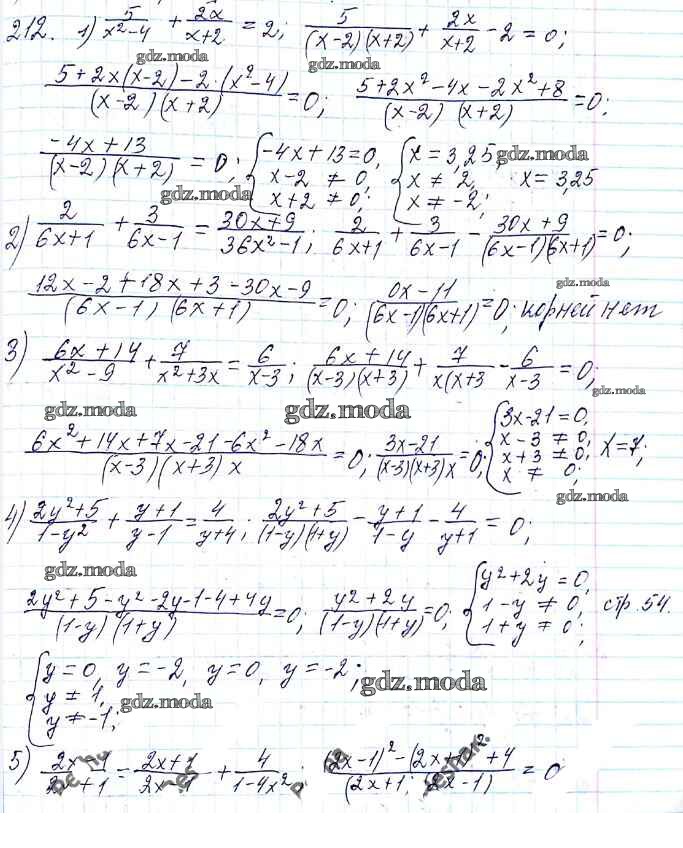 212. 1) 5/(x²-4) + 2x/(x+2) = 2; 5/((x-2)(x+2)) + 2x/(x+2) - 2 = 0;
gdz.moda gdz.moda
(5+2x(x-2)-2·(x²-4))/((x-2)(x+2)) = 0; (5+2x²-4x-2x²+8)/((x-2)(x+2)) = 0;
(-4x+13)/((x-2)(x+2)) = 0; { -4x+13=0, x-2≠0, x+2≠0; { x=3,25, x≠2, x≠-2; x=3,25
gdz.moda gdz.moda gdz.moda
2) 2/(6x+1) + 3/(6x-1) = (30x+9)/(36x²-1); 2/(6x+1) + 3/(6x-1) - (30x+9)/((6x-1)(6x+1)) = 0;
gdz.moda
(12x-2+18x+3-30x-9)/((6x-1)(6x+1)) = 0; (0x-11)/((6x-1)(6x+1)) = 0; корней нет
3) (6x+14)/(x²-9) + 7/(x²+3x) = 6/(x-3); (6x+14)/((x-3)(x+3)) + 7/(x(x+3 - 6/(x-3) = 0;
gdz.moda
gdz.moda gdz.moda
(6x²+14x+7x-21-6x²-18x)/((x-3)(x+3)x) = 0; (3x-21)/((x-3)(x+3)x) = 0; { 3x-21=0, x-3≠0, x+3≠0, x≠0; x=7;
gdz.moda
4) (2y²+5)/(1-y²) + (y+1)/(y-1) = 4/(y+4); (2y²+5)/((1-y)(1+y)) - (y+1)/(1-y) - 4/(y+1) = 0;
gdz.moda
(2y²+5-y²-2y-1-4+4y)/((1-y)(1+y)) = 0; (y²+2y)/((1-y)(1+y)) = 0; { y²+2y=0, 1-y≠0, 1+y≠0; стр. 54.
{ y=0, y=-2, y≠1, y≠-1; y=0, y=-2;
gdz.moda gdz.moda
5) = (2x+1)/ + 4/(1-4x²); = 0